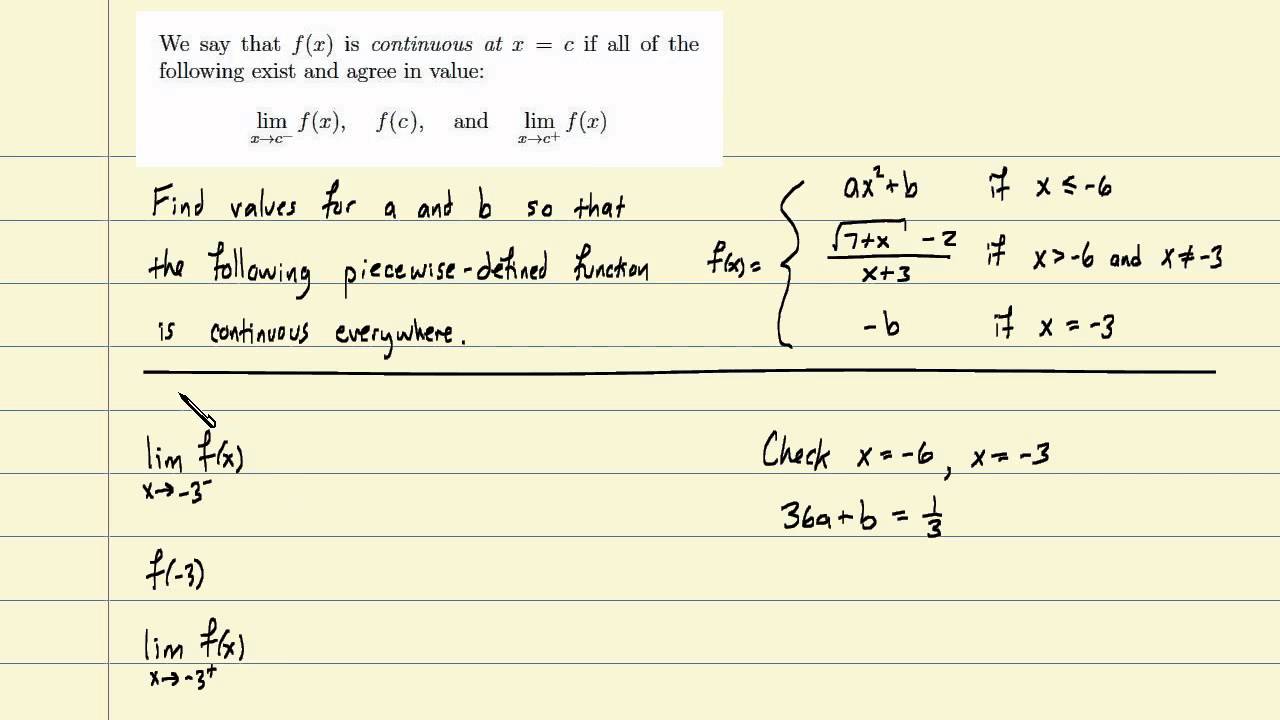 We say that f(x) is continuous at x = c if all of the
following exist and agree in value:
lim x→c⁻ f(x), f(c), and lim x→c⁺ f(x)
Find values for a and b so that
the following piecewise-defined function
is continuous everywhere.
f(x) = {
ax² + b if x ≤ -6
(√(7+x) - 2)/(x+3) if x > -6 and x ≠ -3
-b if x = -3
lim x→-3⁻ f(x)
f(-3)
lim x→-3⁺ f(x)
Check x = -6, x = -3
36a + b = 1/3